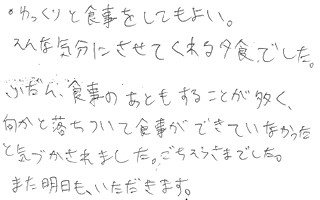 ・ゆっくりと食事をしてもよい。
そんな気分にさせてくれる夕食でした。
ふだん、食事のあともすることが多く、
何かと落ちついて食事ができていなかった
と気づかされました。ごちそうさまでした。
また明日も、いただきます。